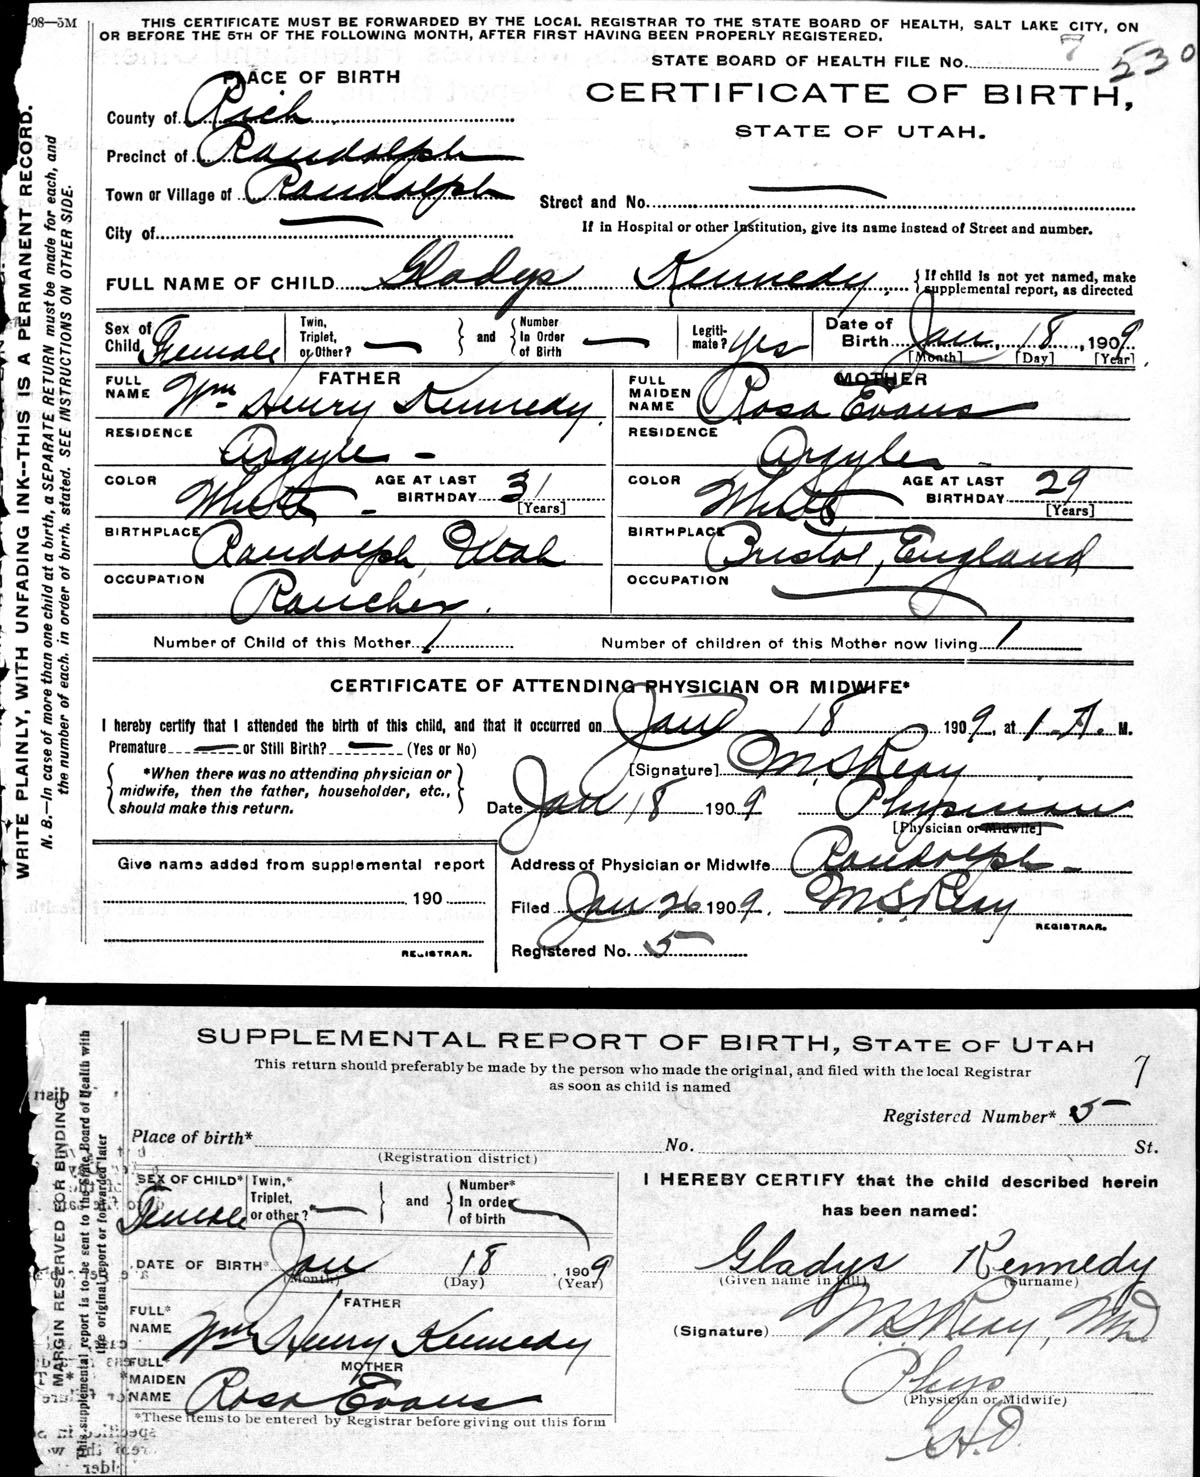 -08—5M
THIS CERTIFICATE MUST BE FORWARDED BY THE LOCAL REGISTRAR TO THE STATE BOARD OF HEALTH, SALT LAKE CITY, ON
OR BEFORE THE 5TH OF THE FOLLOWING MONTH, AFTER FIRST HAVING BEEN PROPERLY REGISTERED.
STATE BOARD OF HEALTH FILE NO. 7 530
PLACE OF BIRTH
CERTIFICATE OF BIRTH,
STATE OF UTAH.
County of Rich
Precinct of Randolph
Town or Village of Randolph
Street and No. —
City of —
If in Hospital or other Institution, give its name instead of Street and number.
FULL NAME OF CHILD Gladys Kennedy. { If child is not yet named, make
supplemental report, as directed
Sex of Child Female
Twin, Triplet, or Other? — } and { Number In Order of Birth —
Legiti-mate? Yes
Date of Birth Jan. 18, 1909.
[Month] [Day] [Year]
FATHER
FULL NAME Wm Henry Kennedy.
RESIDENCE Argyle –
COLOR White – AGE AT LAST BIRTHDAY 31 [Years]
BIRTHPLACE Randolph, Utah
OCCUPATION Rancher.
MOTHER
FULL MAIDEN NAME Rosa Evans
RESIDENCE Argyle –
COLOR White AGE AT LAST BIRTHDAY 29 [Years]
BIRTHPLACE Bristol, England
OCCUPATION —
Number of Child of this Mother 1 Number of children of this Mother now living 1
CERTIFICATE OF ATTENDING PHYSICIAN OR MIDWIFE*
I hereby certify that I attended the birth of this child, and that it occurred on Jan 18 1909, at 1 A. M.
Premature — or Still Birth? — (Yes or No)
{ *When there was no attending physician or
midwife, then the father, householder, etc.,
should make this return. }
[Signature] M. S. Reay
Date Jan 18 1909 Physician
[Physician or Midwife]
Give name added from supplemental report
190
REGISTRAR.
Address of Physician or Midwife Randolph –
Filed Jan 26 1909. M. S. Reay
REGISTRAR.
Registered No. 5
WRITE PLAINLY, WITH UNFADING INK--THIS IS A PERMANENT RECORD.
N. B.—In case of more than one child at a birth, a SEPARATE RETURN must be made for each, and
the number of each. in order of birth. stated. SEE INSTRUCTIONS ON OTHER SIDE.
SUPPLEMENTAL REPORT OF BIRTH, STATE OF UTAH
This return should preferably be made by the person who made the original, and filed with the local Registrar
as soon as child is named
7
Registered Number* 5
Place of birth* No. St.
(Registration district)
SEX OF CHILD* Female
Twin,* Triplet, or other?* — } and { Number* In order of birth
I HEREBY CERTIFY that the child described herein
has been named:
DATE OF BIRTH* Jan 18 1909
(Month) (Day) (Year)
Gladys Kennedy
(Given name in full) (Surname)
FATHER
FULL* NAME Wm Henry Kennedy
(Signature) M. S. Reay, MD
MOTHER
FULL* MAIDEN NAME Rosa Evans
Phys
(Physician or Midwife)
*These items to be entered by Registrar before giving out this form
MARGIN RESERVED FOR BINDING
This supplemental report is to be sent to the State Board of Health with
the original report or forwarded later